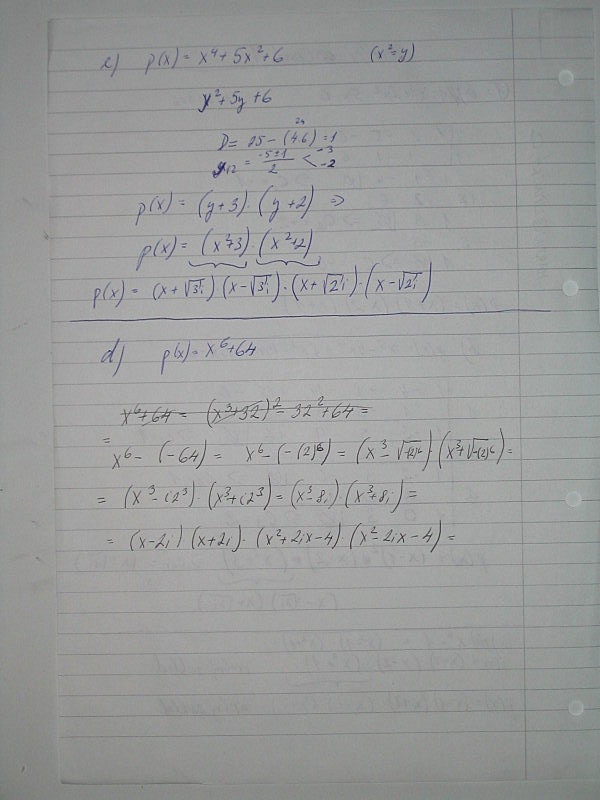 c) p(x) = x⁴ + 5x² + 6 (x² = y)
y² + 5y + 6
D = 25 - (4·6) = 1 24
y₁₂ = (-5±1)/2 < -3 -2
p(x) = (y+3)·(y+2) ⇒
p(x) = (x²+3)·(x²+2)
p(x) = (x+√3 i)(x-√3 i)·(x+√2 i)·(x-√2 i)
d) p(x) = x⁶+64
x⁶+64 = (x³+32)² - 32² + 64 =
=
x⁶ - (-64) = x⁶ - (-(2)⁶) = (x³ - √-(2)⁶)·(x³ + √-(2)⁶) =
= (x³ - i2³)·(x³ + i2³) = (x³ - 8i)·(x³ + 8i) =
= (x-2i)(x+2i)·(x²+2ix-4)·(x²-2ix-4) =